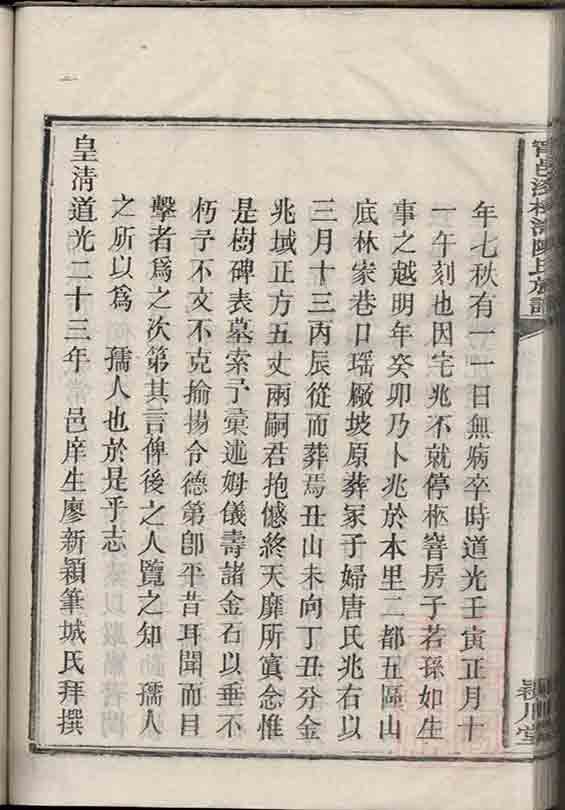 年七秩有一一日無病卒時道光壬寅正月十
一午刻也因宅兆不就停柩窨房子若孫如生
事之越明年癸卯乃卜兆於本里二都五區山
底林家巷口瑶廠坡原葬冢子婦唐氏兆右以
三月十三丙辰從而葬焉丑山未向丁丑分金
兆域正方五丈兩嗣君抱憾終天靡所寘念惟
是樹碑表墓索予彙述姆儀壽諸金石以垂不
朽予不文不克揄揚令德第卽平昔耳聞而目
擊者爲之次第其言俾後之人覽之知 孺人
之所以爲 孺人也於是乎志
皇清道光二十三年 邑庠生廖新穎筆城氏拜撰
陳氏族譜
潁川堂